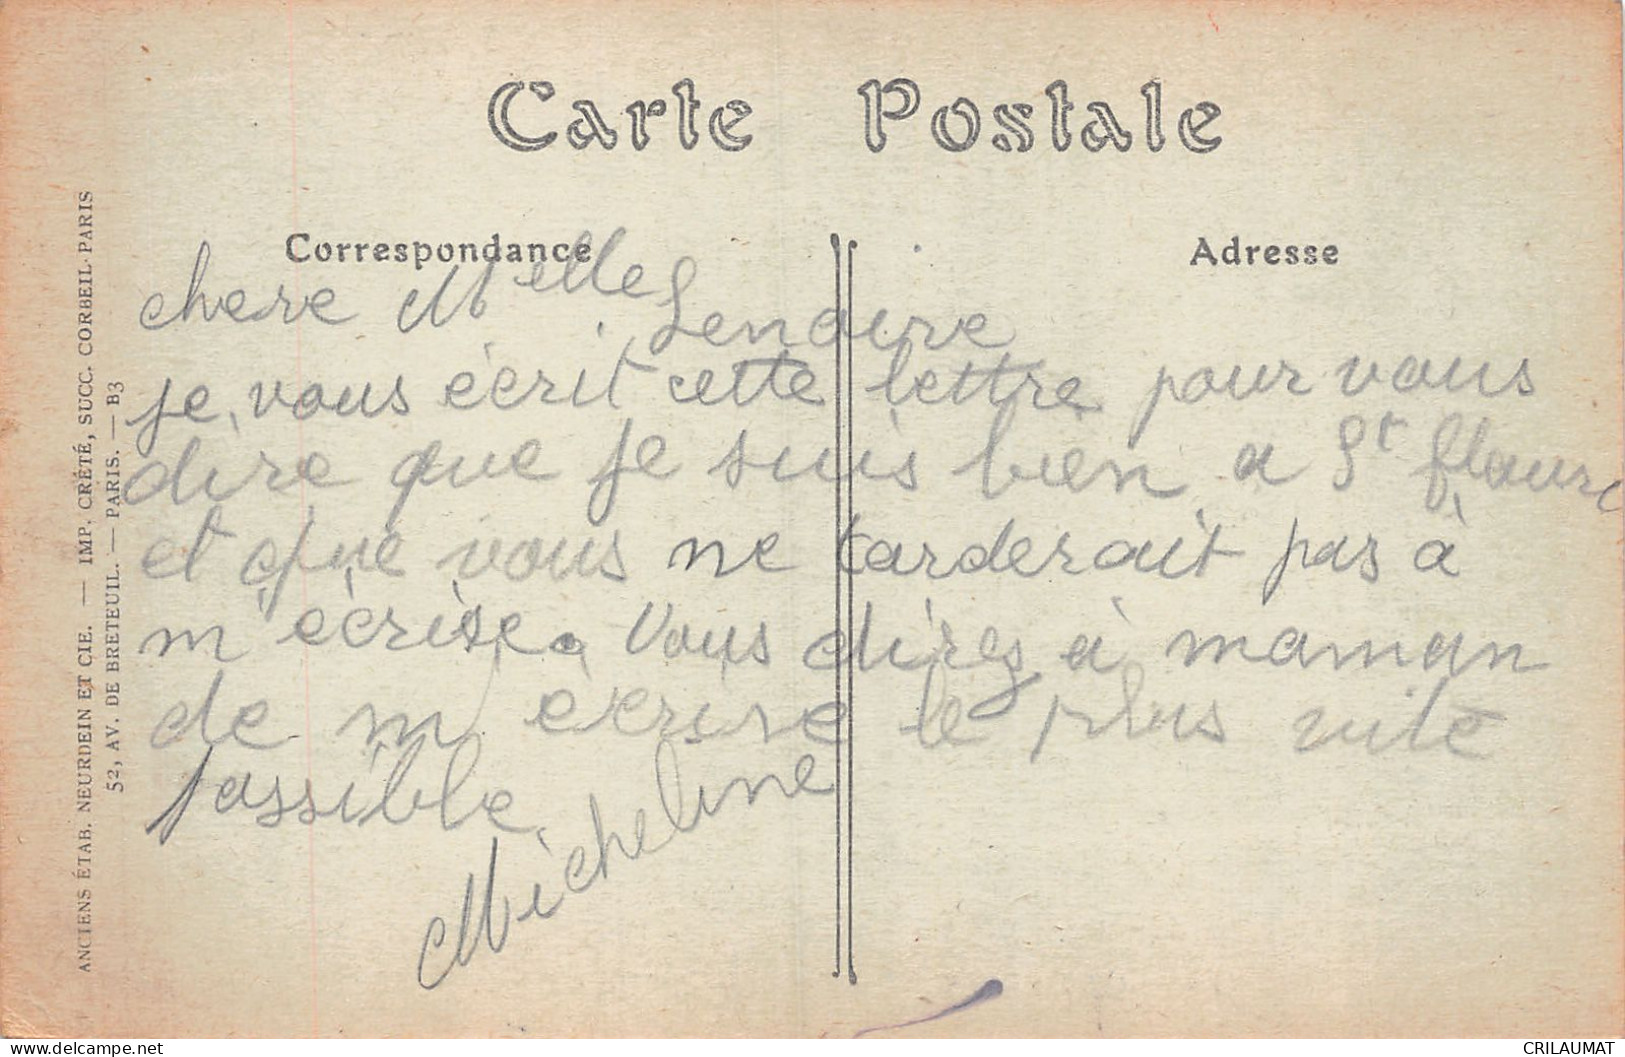 Carte Postale
Correspondance
Adresse
chere Melles
Lendire
je vous écrit cette lettre pour vous
dire que je suis bien a St floure
et que vous ne tarderait pas à
m'écrise. Vous direz à maman
de m'écrise le plus vite
possible
Micheline
ANCIENS ÉTAB. NEURDEIN ET CIE. — IMP. CRÉTÉ, SUCC. CORBEIL-PARIS
52, AV. DE BRETEUIL. — PARIS. — B3
https://www.delcampe.net
CRILAUMAT